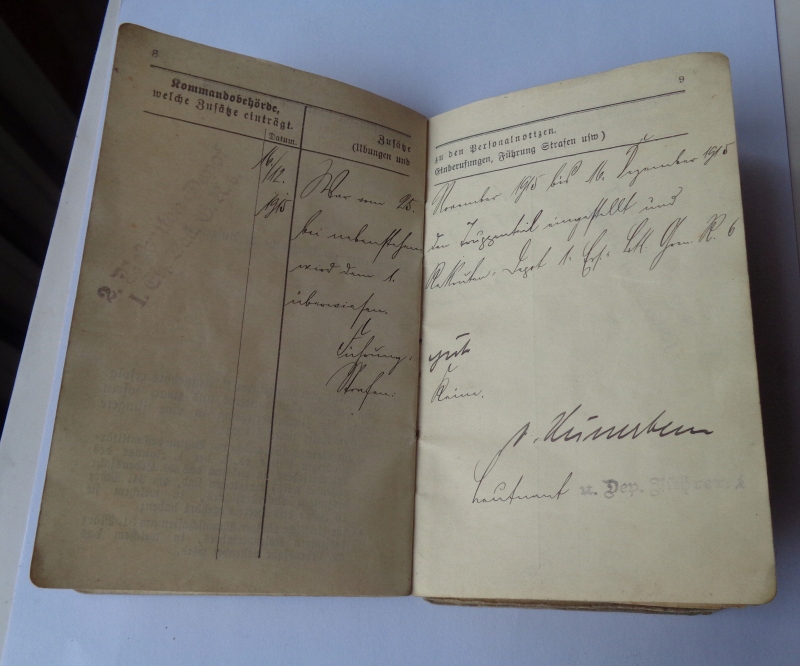 8
Kommandobehörde,
welche Zusätze einträgt.
Datum.
Zusätze
(Übungen und
16/12. 1915
War vom 25.
bei nebenstehen
wird dem 1.
überwiesen.
Führung:
Strafen:
9
zu den Personalnotizen.
Einberufungen, Führung Strafen usw)
November 1915 bis 16. Dezember 1915
den Truppenteil eingestellt und
Rekruten-Depot 1. Ers. Btl. Gren. R. 6
gut
Keine.
Leutnant u. Dep. Führer.